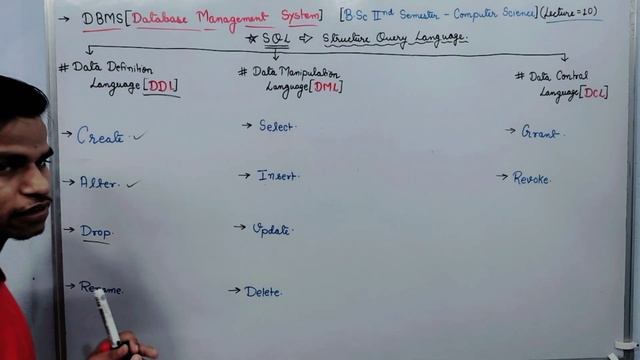 → DBMS [Database Management System] [B.Sc IInd Semester - Computer Science] (Lecture=10)
* SQL ⇨ Structure Query Language.
# Data Definition
Language [DDL]
→ Create. ✓
→ Alter. ✓
→ Drop.
→ Rename.
# Data Manipulation
Language [DML]
→ Select.
→ Insert.
→ Update.
→ Delete.
# Data Control
Language [DCL]
→ Grant.
→ Revoke.